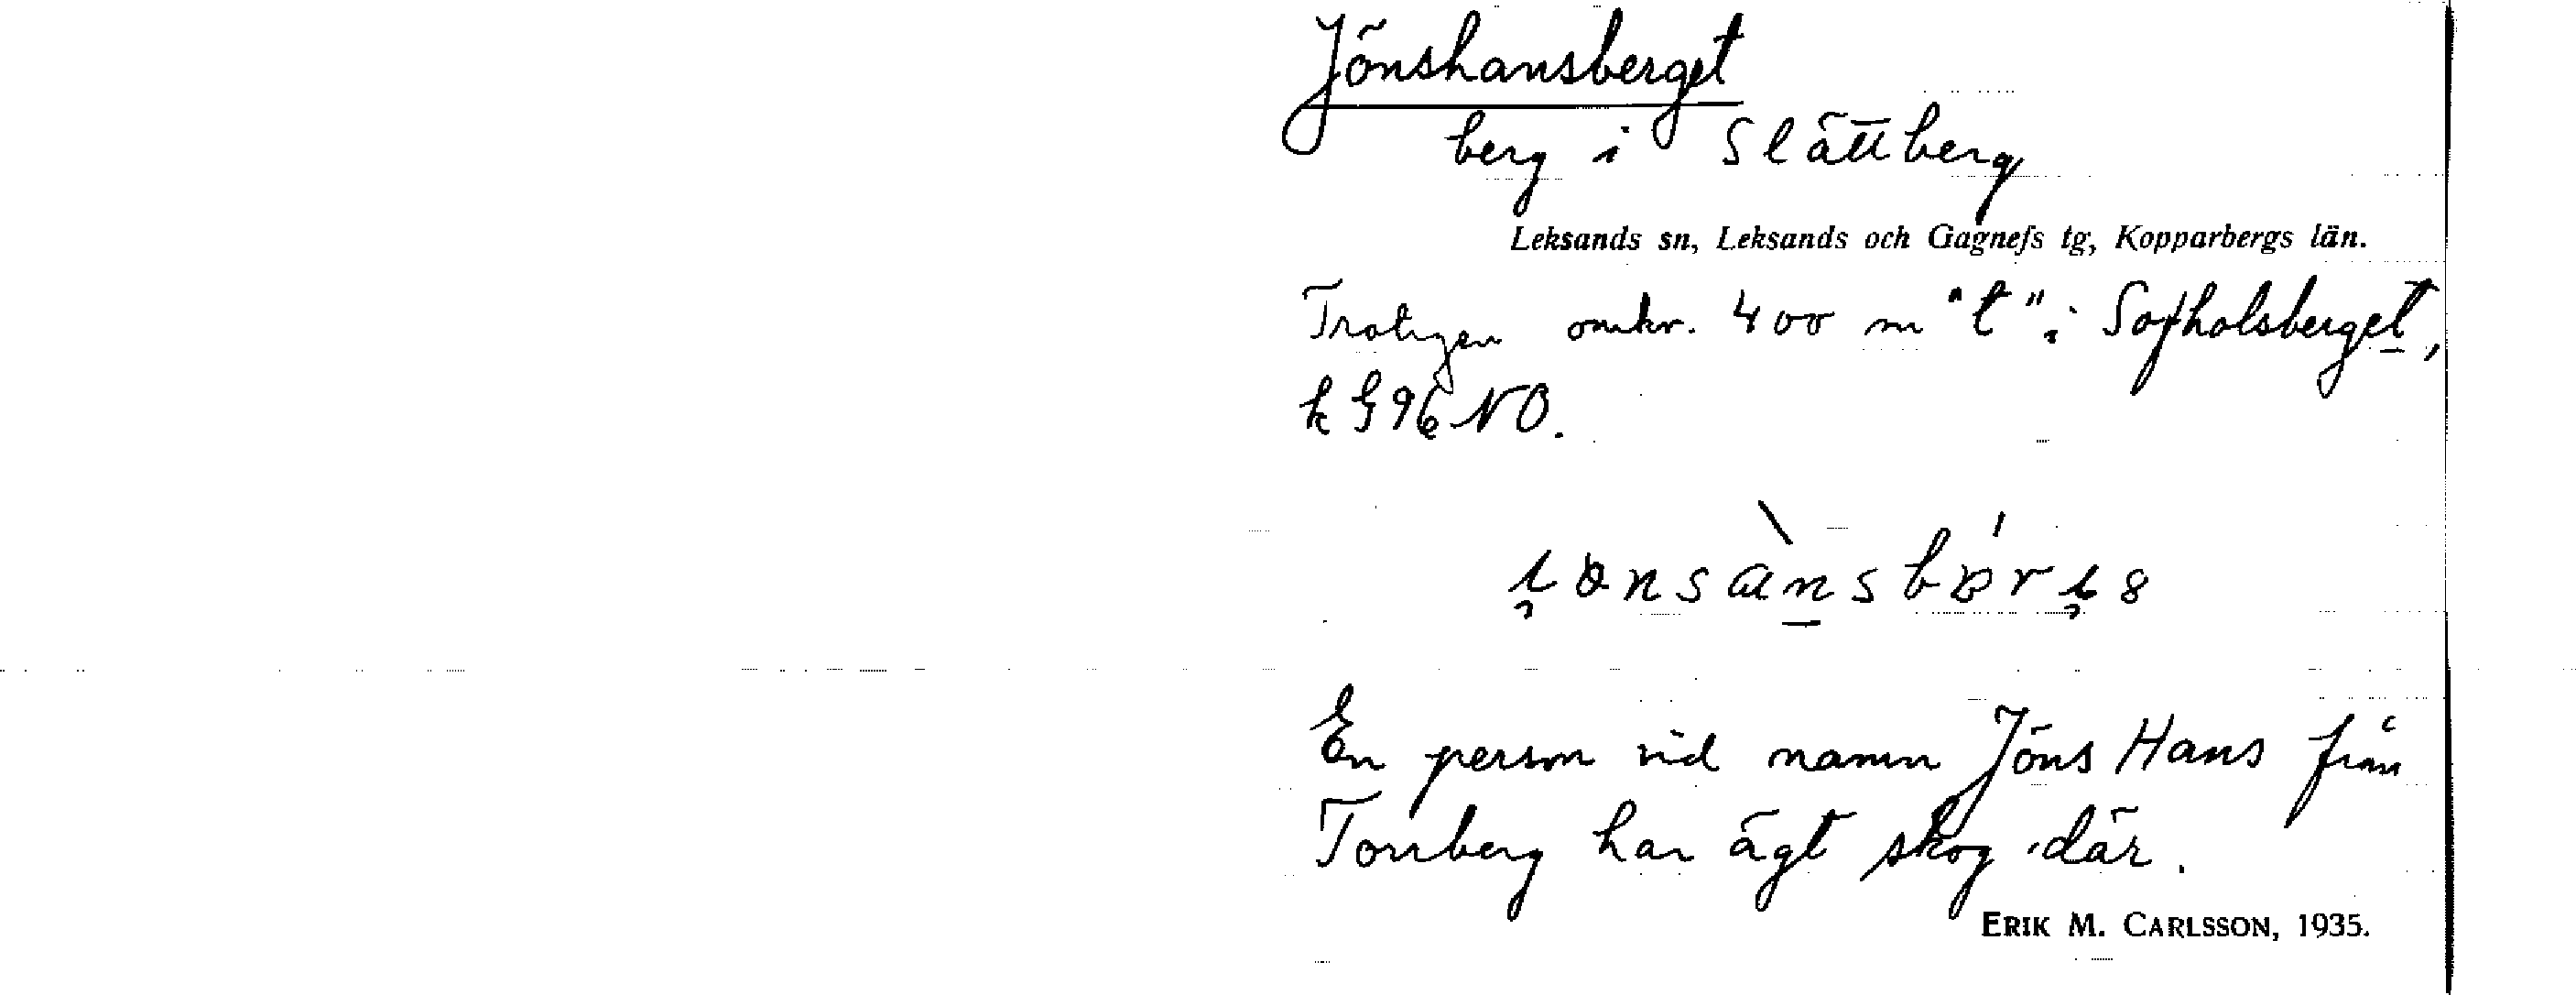 Jönshansberget
berg i Slättberg
Leksands sn, Leksands och Gagnefs tg, Kopparbergs län.
Troligen omkr. 400 m "t" i Sopholsberget,
k G 96 NO.
En person vid namn Jöns Hans från
Torrberg har ägt skog där.
ERIK M. CARLSSON, 1935.